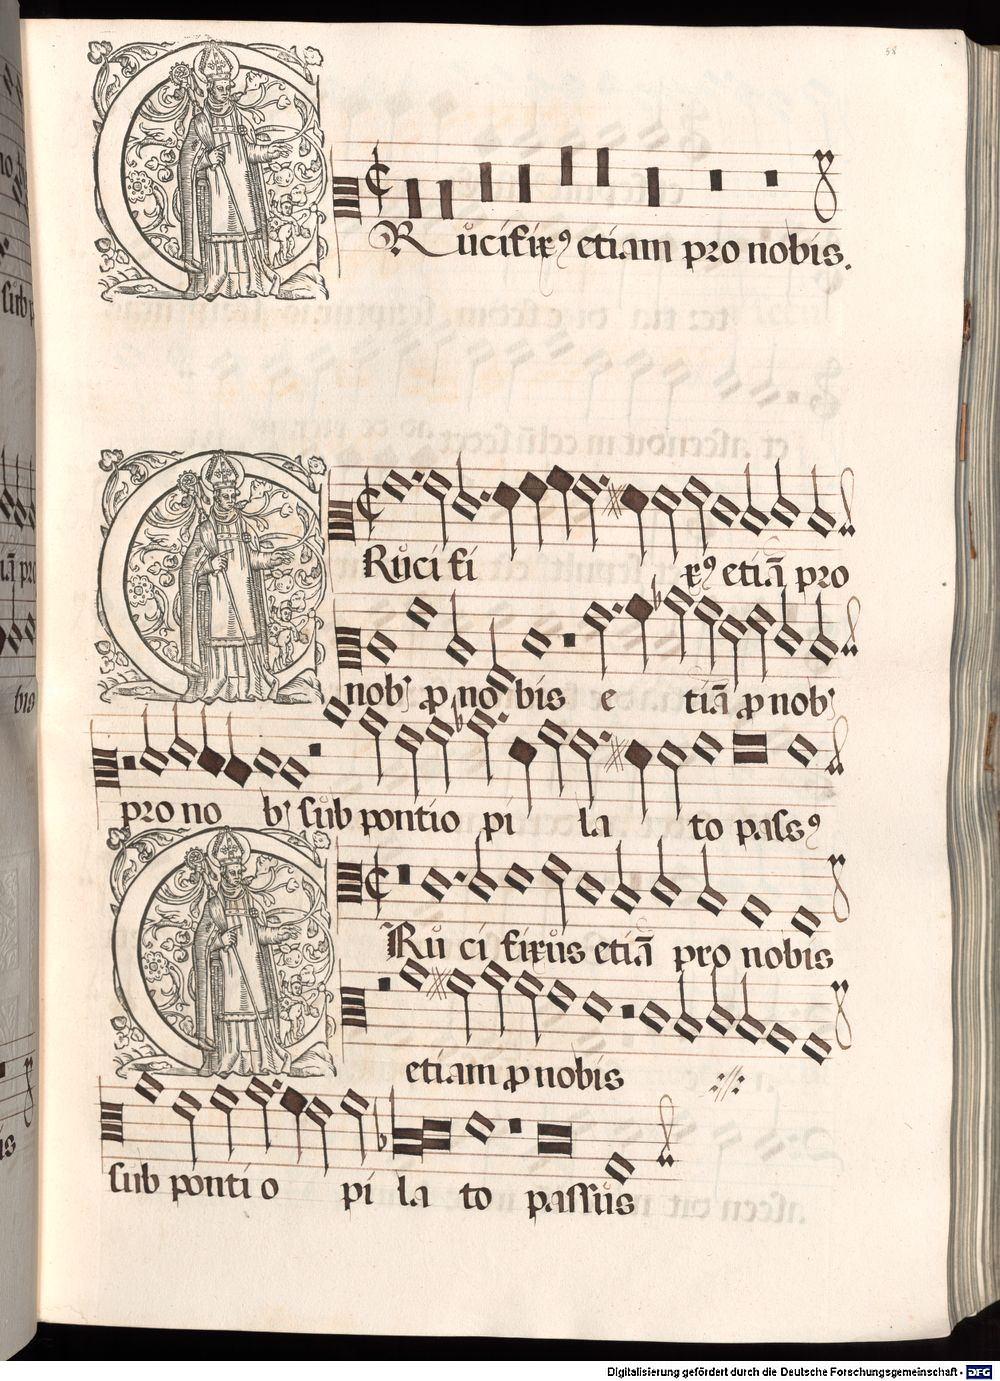 58
CRucifixꝰ etiam pro nobis.
CRucifi xꝰ etiā pro
nob ꝓ nobis e tiā ꝓ nob
pro no b sub pontio pi la to passꝰ
CRu ci fixus etiā pro nobis
etiam ꝓ nobis ://:
sub ponti o pi la to passus
Digitalisierung gefördert durch die Deutsche Forschungsgemeinschaft - DFG